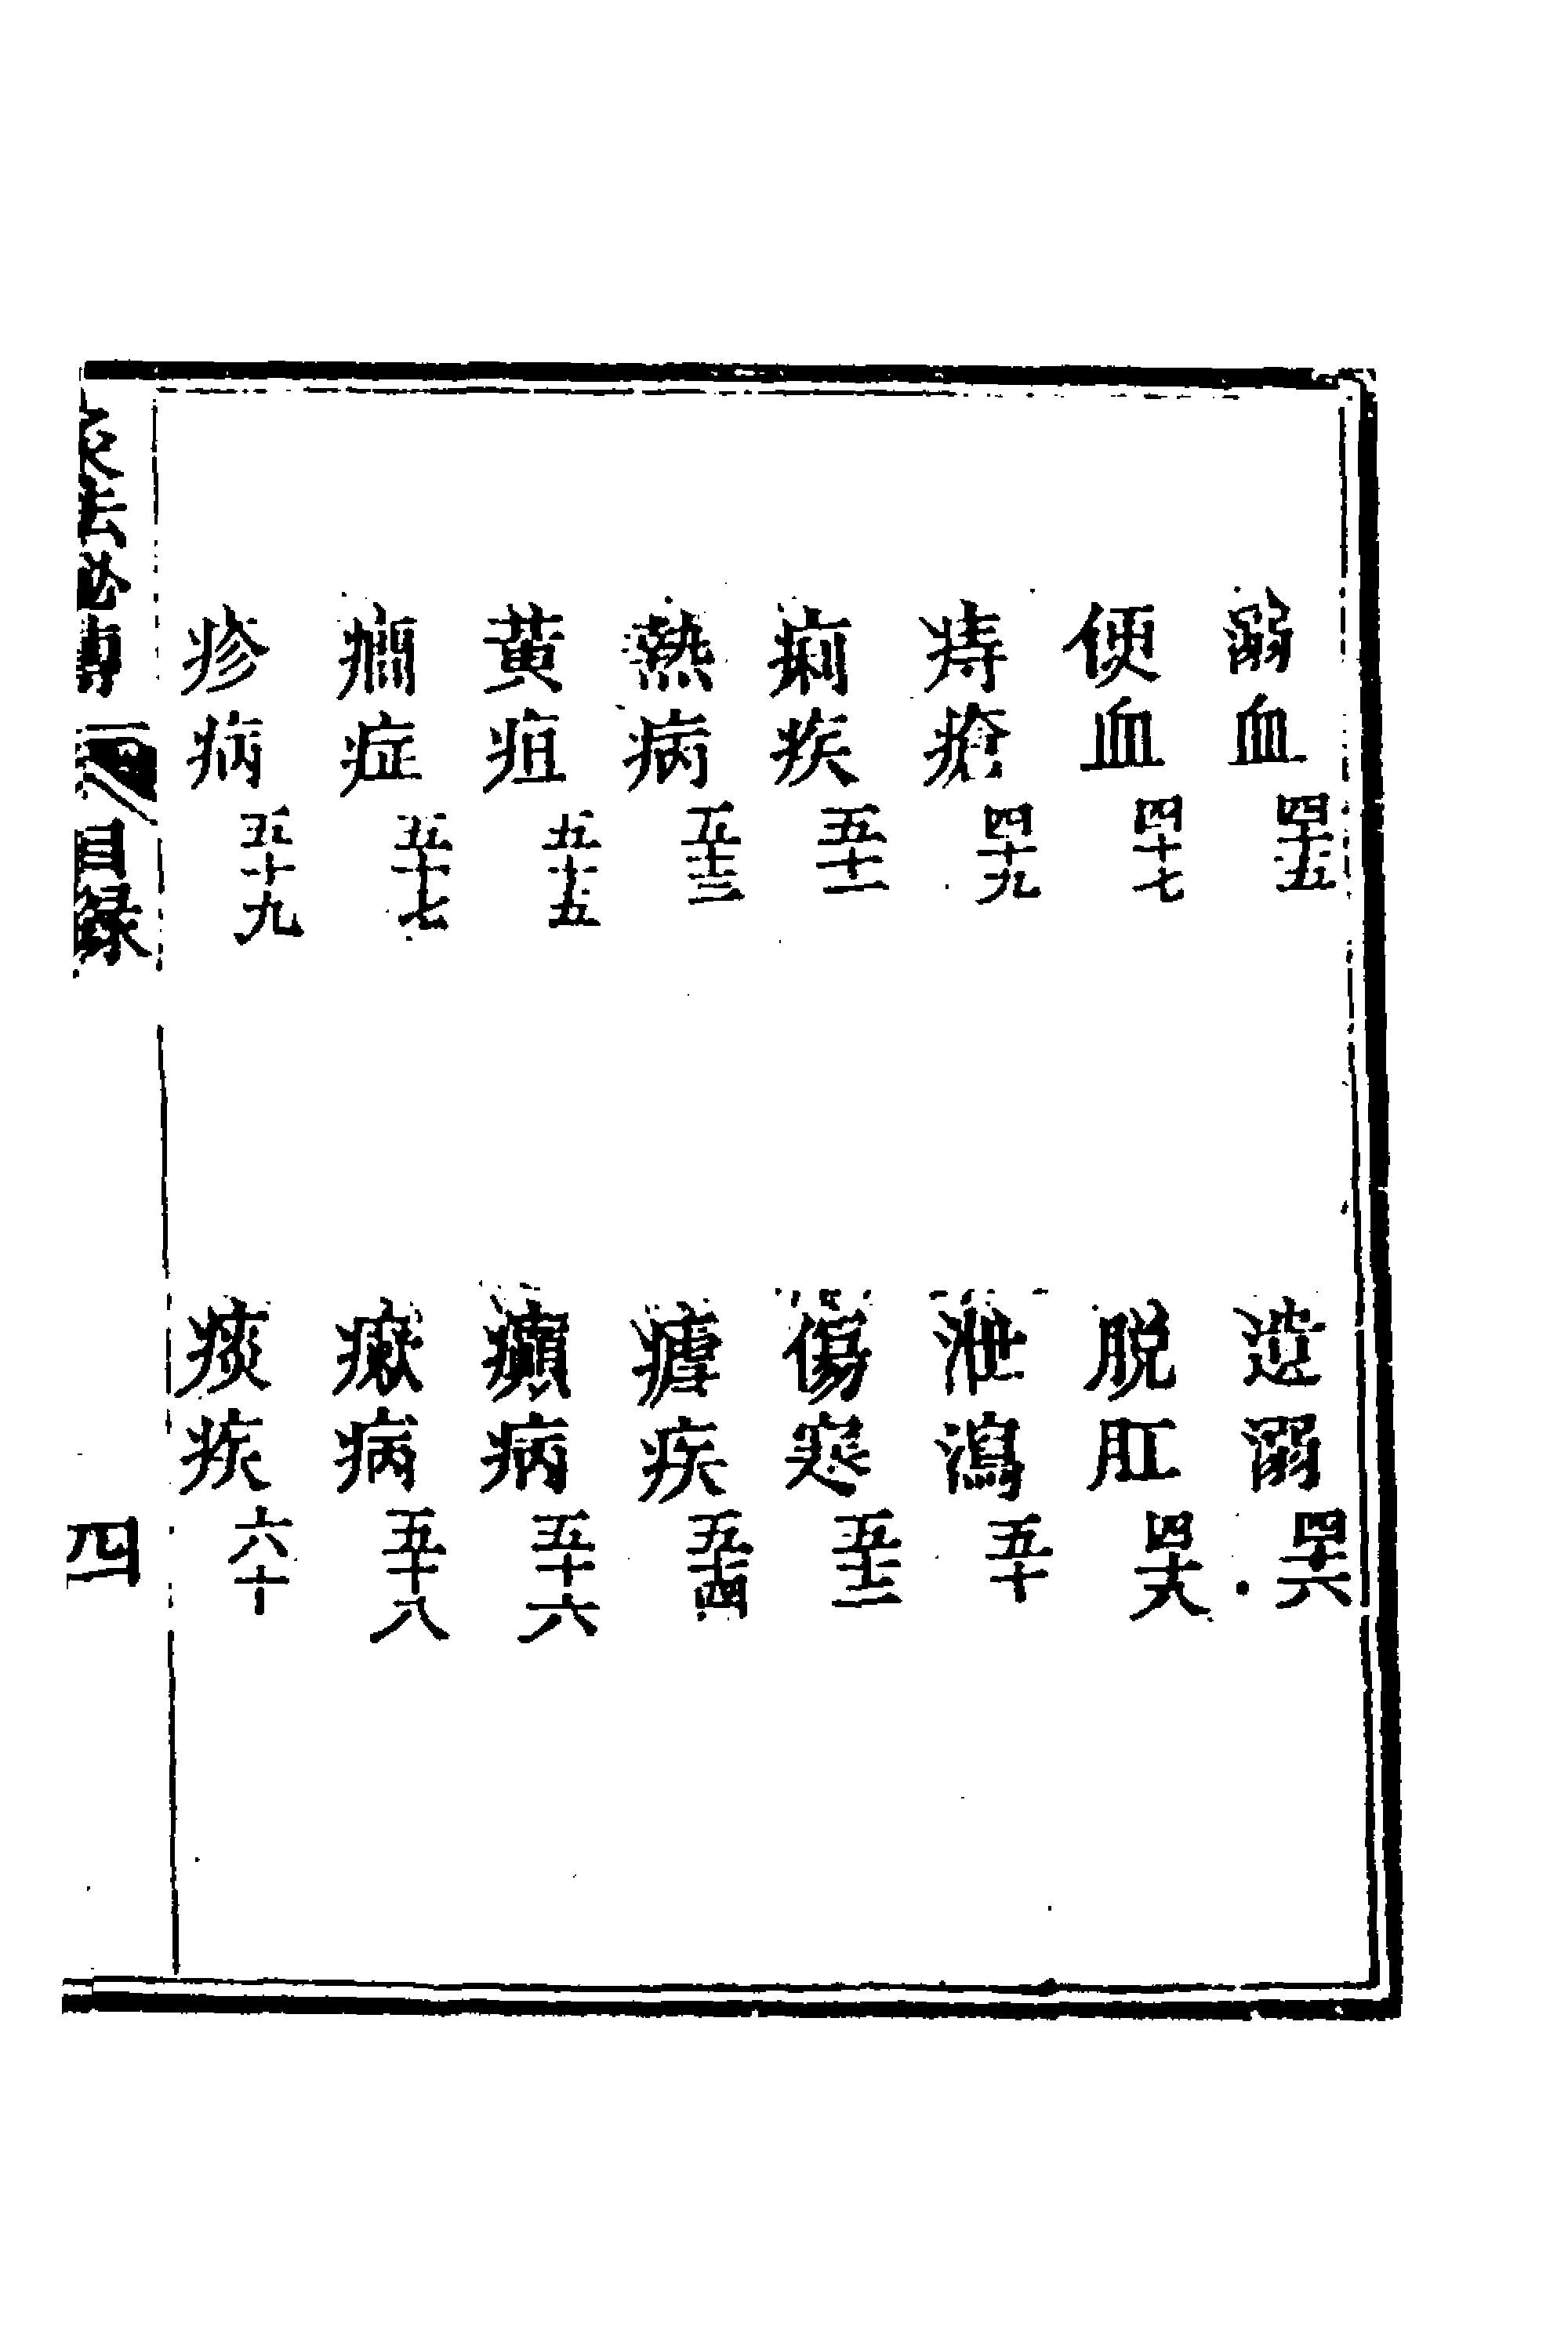 溺血 四十五 遺溺 四十六
便血 四十七 脱肛 四十八
痔瘡 四十九 泄瀉 五十
痢疾 五十一 傷寒 五十二
熱病 五十三 瘧疾 五十四
黄疸 五十五 癲病 五十六
癇症 五十七 瘚病 五十八
疹病 五十九 痰疾 六十
灸法秘傳 目録 四